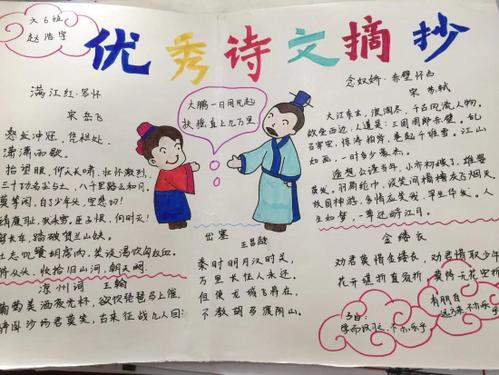 六6班
赵浩宇
优秀诗文摘抄
满江红·写怀
宋 岳飞
怒发冲冠,凭栏处、
潇潇雨歇。
抬望眼,仰天长啸,壮怀激烈。
三十功名尘与土,八千里路云和月。
莫等闲,白了少年头,空悲切!
靖康耻,犹未雪。臣子恨,何时灭!
驾长车,踏破贺兰山缺。
壮志饥餐胡虏肉,笑谈渴饮匈奴血。
待从头、收拾旧山河,朝天阙。
凉州词 王翰
葡萄美酒夜光杯,欲饮琵琶马上催。
醉卧沙场君莫笑,古来征战几人回?
大鹏一日同风起
扶摇直上九万里
出塞
王昌龄
秦时明月汉时关,
万里长征人未还。
但使龙城飞将在,
不教胡马度阴山。
念奴娇·赤壁怀古
宋 苏轼
大江东去,浪淘尽,千古风流人物。
故垒西边,人道是:三国周郎赤壁。乱
石穿空,惊涛拍岸,卷起千堆雪。江山
如画,一时多少豪杰。
遥想公瑾当年,小乔初嫁了,雄姿
英发。羽扇纶巾,谈笑间樯橹灰飞烟灭。
故国神游,多情应笑我,早生华发。人
生如梦,一尊还酹江月。
金缕衣
劝君莫惜金缕衣,劝君惜取少年
花开堪折直须折,莫待无花空
子曰:
学而时习之,不亦乐乎
有朋自
远方来不亦乐乎